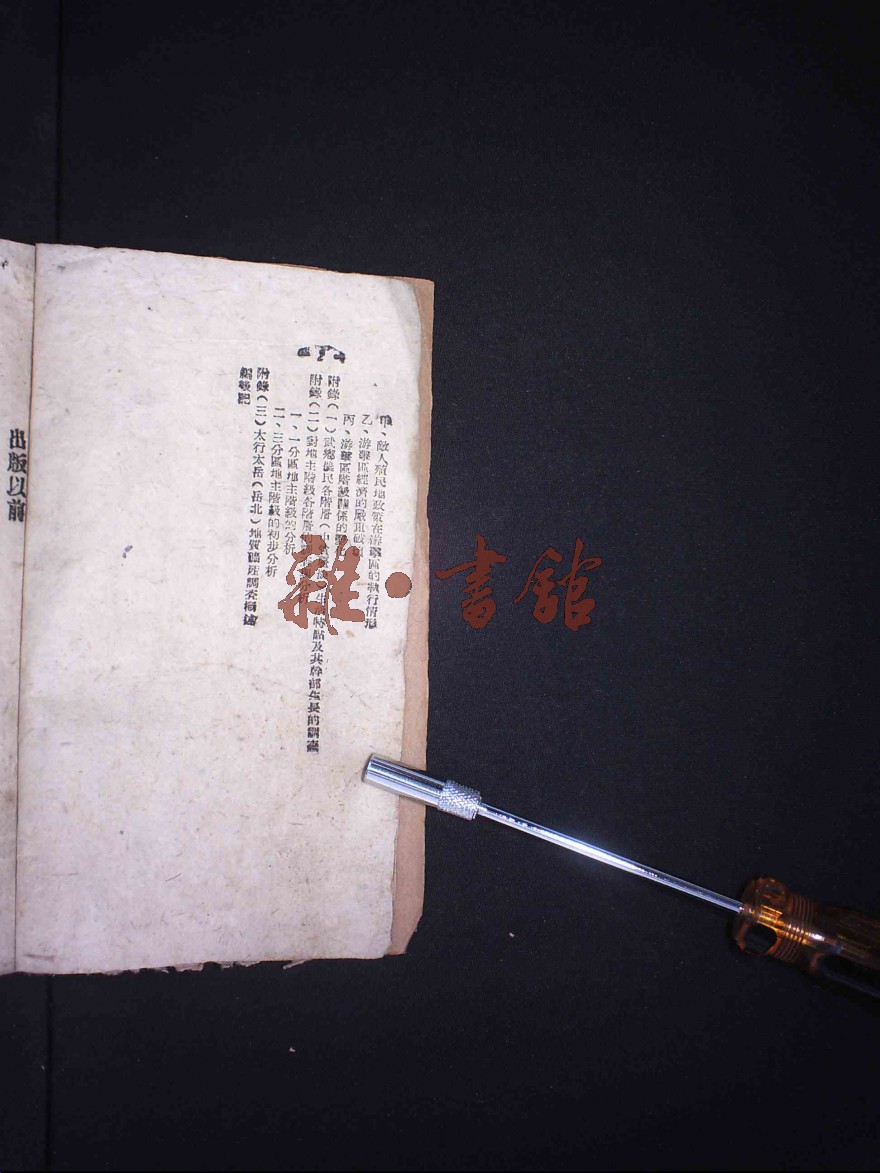 甲、敵人殖民地政策在游擊區的執行情形
乙、游擊區經濟的嚴重破
丙、游擊區階級關係的
附錄（一）武鄉農民各階層（
特點及其幹部生長的調查
附錄（二）對地主階級各階層
一、一分區地主階級的分析
二、三分區地主階級的初步分析
附錄（三）太行太岳（岳北）地質礦產調查概述
編後記
出版以前
雜·書館